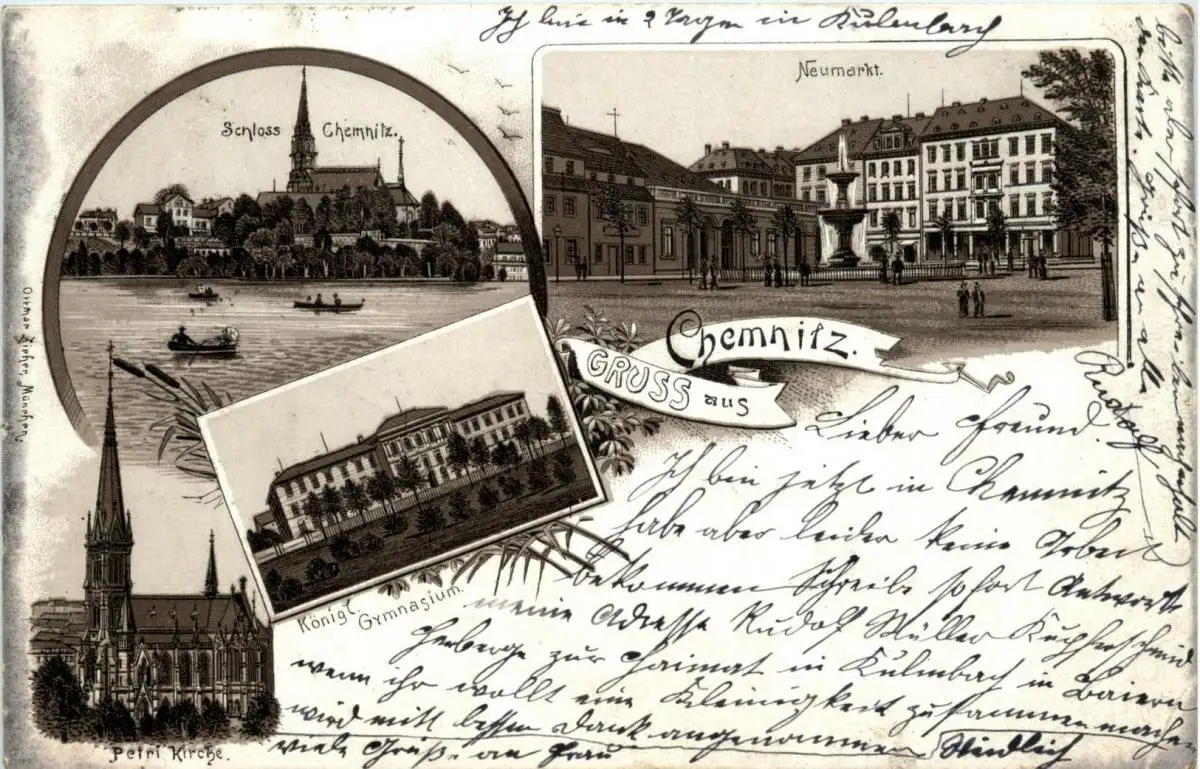 Ich bin in 2 Tagen in Kulenbach
Neumarkt.
Schloss Chemnitz.
GRUSS aus
Chemnitz.
Ottmar Zieher, München.
Königl. Gymnasium.
Petri Kirche.
Lieber Freund.
Ich bin jetzt in Chemnitz
habe aber leider keine Arbeit
bekommen Schreibe sofort Antwort
meine Adresse Rudolf Müller Kupferschmid
Herberge zur Haimat in Kulmbach in Baiern
wenn ihr wollt eine Kleinigkeit zusammen machen
wird mitt besten Dank angenommen
viele Grüße an Frau
Grüße an alle
Rudolf